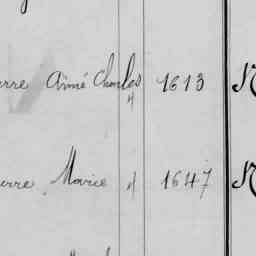 erre Aimé Charles 1613 N
erre Marie 1647 N